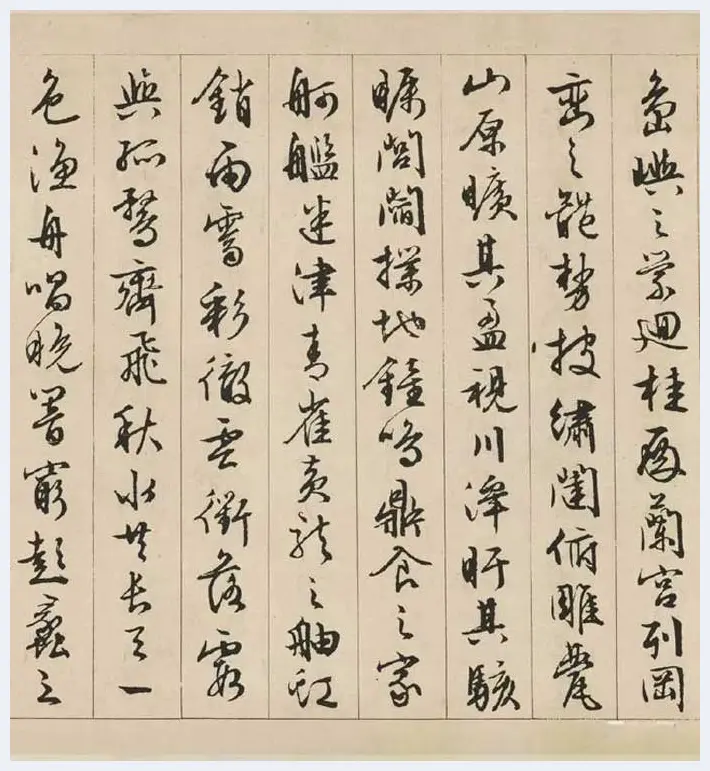 島嶼之縈迴桂殿蘭宮列岡
巒之體勢披繡闥俯雕甍
山原曠其盈視川澤盱其駭
矚閭閻撲地鐘鳴鼎食之家
舸艦迷津青雀黃龍之舳虹
銷雨霽彩徹雲衢落霞
與孤鶩齊飛秋水共長天一
色漁舟唱晚響窮彭蠡之